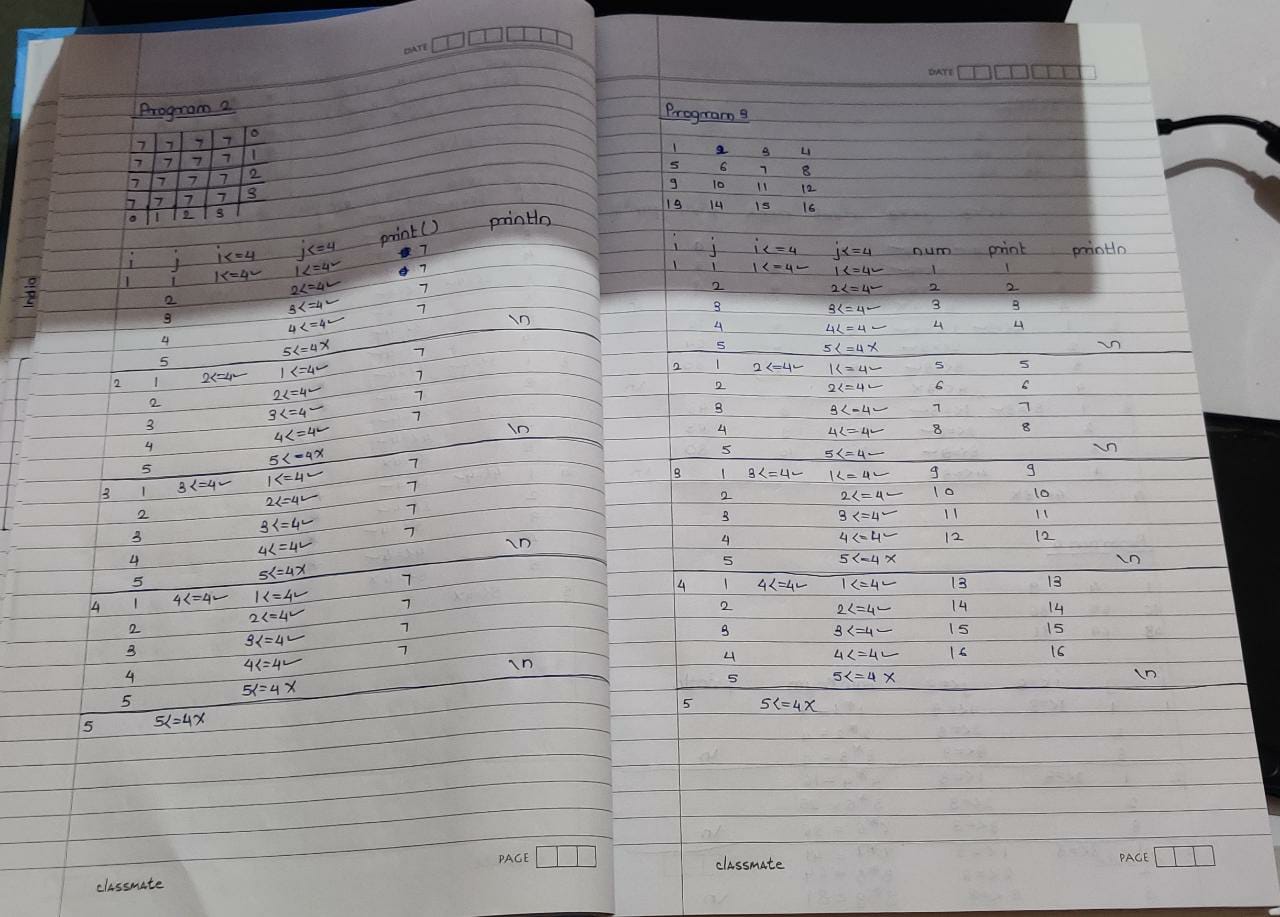 DATE
Program 2
7 7 7 7 0
7 7 7 7 1
7 7 7 7 2
7 7 7 7 3
0 1 2 3
i j i<=4 j<=4 print() println
1 1 1<=4✓ 1<=4✓ 7
2 2<=4✓ 7
3 3<=4✓ 7
4 4<=4✓ 7
5 5<=4× \n
2 1 2<=4✓ 1<=4✓ 7
2 2<=4✓ 7
3 3<=4✓ 7
4 4<=4✓ 7
5 5<=4× \n
3 1 3<=4✓ 1<=4✓ 7
2 2<=4✓ 7
3 3<=4✓ 7
4 4<=4✓ 7
5 5<=4× \n
4 1 4<=4✓ 1<=4✓ 7
2 2<=4✓ 7
3 3<=4✓ 7
4 4<=4✓ 7
5 5<=4× \n
5 5<=4×
classmate
PAGE
DATE
Program 3
1 2 3 4
5 6 7 8
9 10 11 12
13 14 15 16
i j i<=4 j<=4 num print println
1 1 1<=4✓ 1<=4✓ 1 1
2 2<=4✓ 2 2
3 3<=4✓ 3 3
4 4<=4✓ 4 4
5 5<=4× \n
2 1 2<=4✓ 1<=4✓ 5 5
2 2<=4✓ 6 6
3 3<=4✓ 7 7
4 4<=4✓ 8 8
5 5<=4✓ \n
3 1 3<=4✓ 1<=4✓ 9 9
2 2<=4✓ 10 10
3 3<=4✓ 11 11
4 4<=4✓ 12 12
5 5<=4× \n
4 1 4<=4✓ 1<=4✓ 13 13
2 2<=4✓ 14 14
3 3<=4✓ 15 15
4 4<=4✓ 16 16
5 5<=4× \n
5 5<=4×
classmate
PAGE